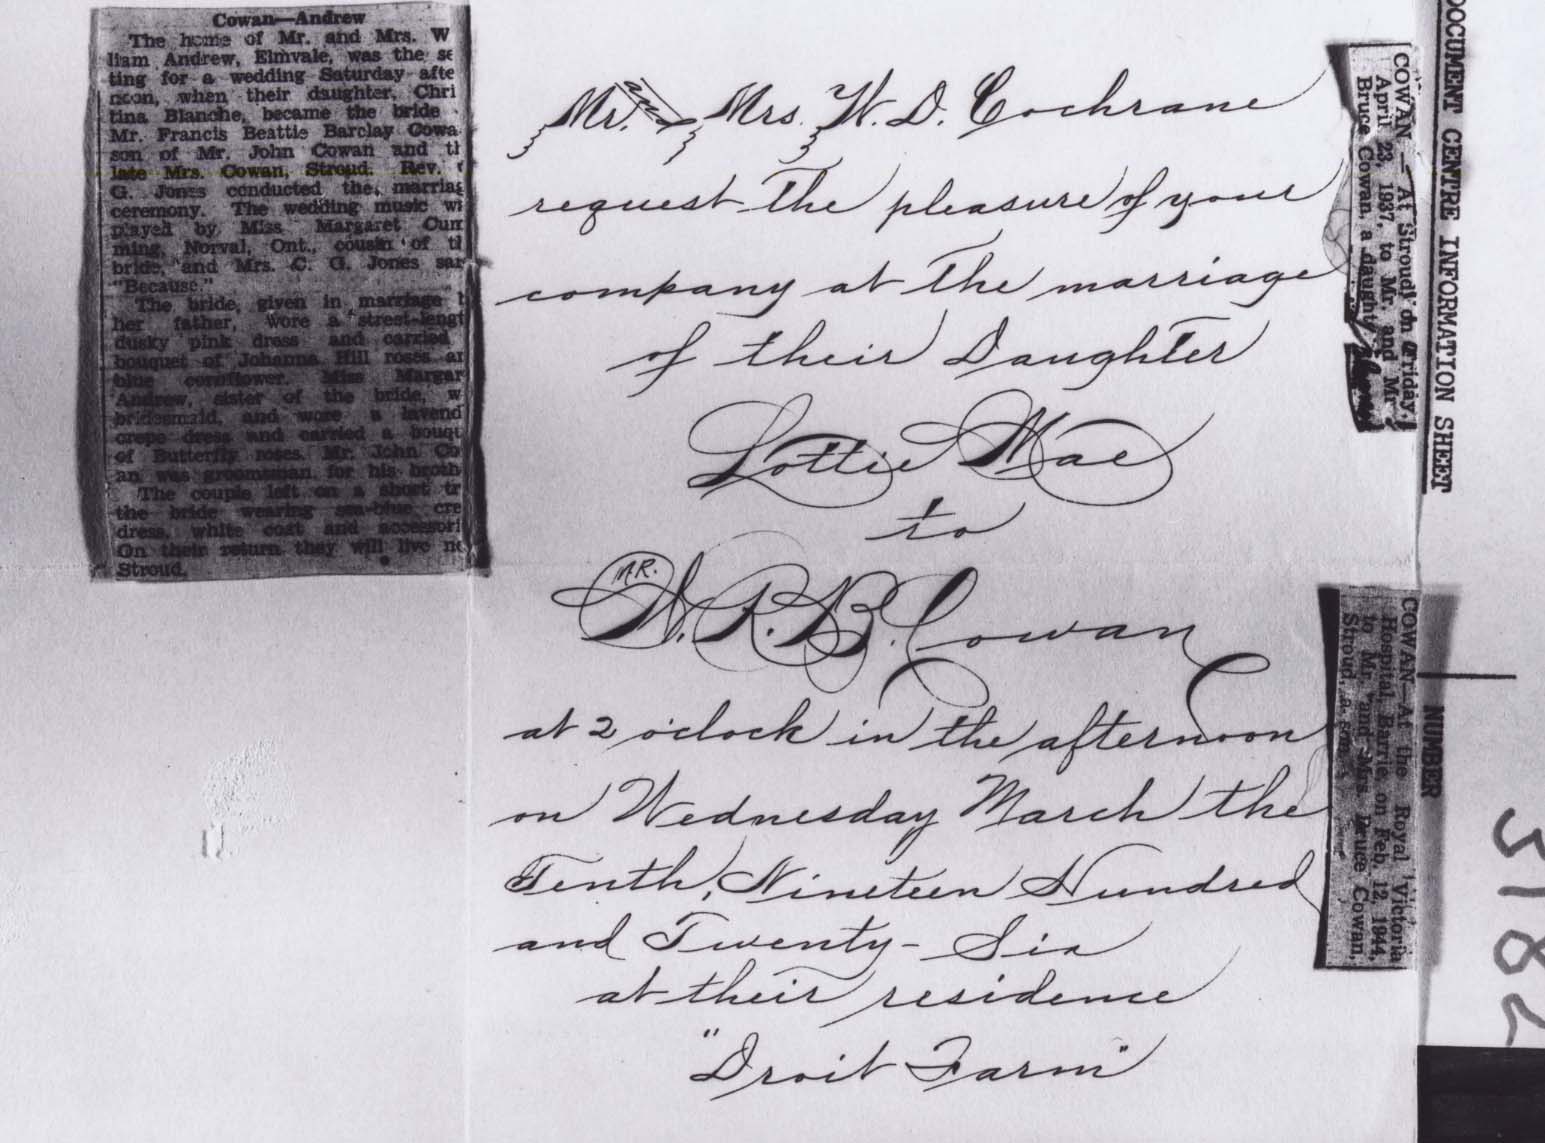 Cowan—Andrew
The home of Mr. and Mrs. W
liam Andrew, Elmvale, was the se
ting for a wedding Saturday afte
noon, when their daughter, Chri
tina Blanche, became the bride
Mr. Francis Beattie Barclay Cowa
son of Mr. John Cowan and th
late Mrs. Cowan, Stroud. Rev.
G. Jones conducted the marriag
ceremony. The wedding music w
played by Miss Margaret Cum
ming, Norval, Ont., cousin of th
bride, and Mrs. C. G. Jones san
"Because."
The bride, given in marriage b
her father, wore a street-lengt
dusky pink dress and carried
bouquet of Johanna Hill roses an
blue cornflower. Miss Margar
Andrew, sister of the bride, w
bridesmaid, and wore a lavend
crepe dress and carried a bouqu
of Butterfly roses. Mr. John Co
an was groomsman for his broth
The couple left on a short tr
the bride wearing sea-blue cre
dress, white coat and accessori
On their return they will live ne
Stroud.
Mr. and Mrs. W. D. Cochrane
request the pleasure of your
company at the marriage
of their Daughter
Lottie Mae
to
MR.
W. R. B. Cowan
at 2 o'clock in the afternoon
on Wednesday March the
Tenth, Nineteen Hundred
and Twenty-Six
at their residence
"Droit Farm"
COWAN — At Stroud, on Friday,
April 23, 1937, to Mr. and Mr
Bruce Cowan, a daught
COWAN—At the Royal Victoria
Hospital, Barrie, on Feb. 12, 1944,
to Mr. and Mrs. Bruce Cowan,
Stroud, a son.
DOCUMENT CENTRE INFORMATION SHEET
NUMBER
5182